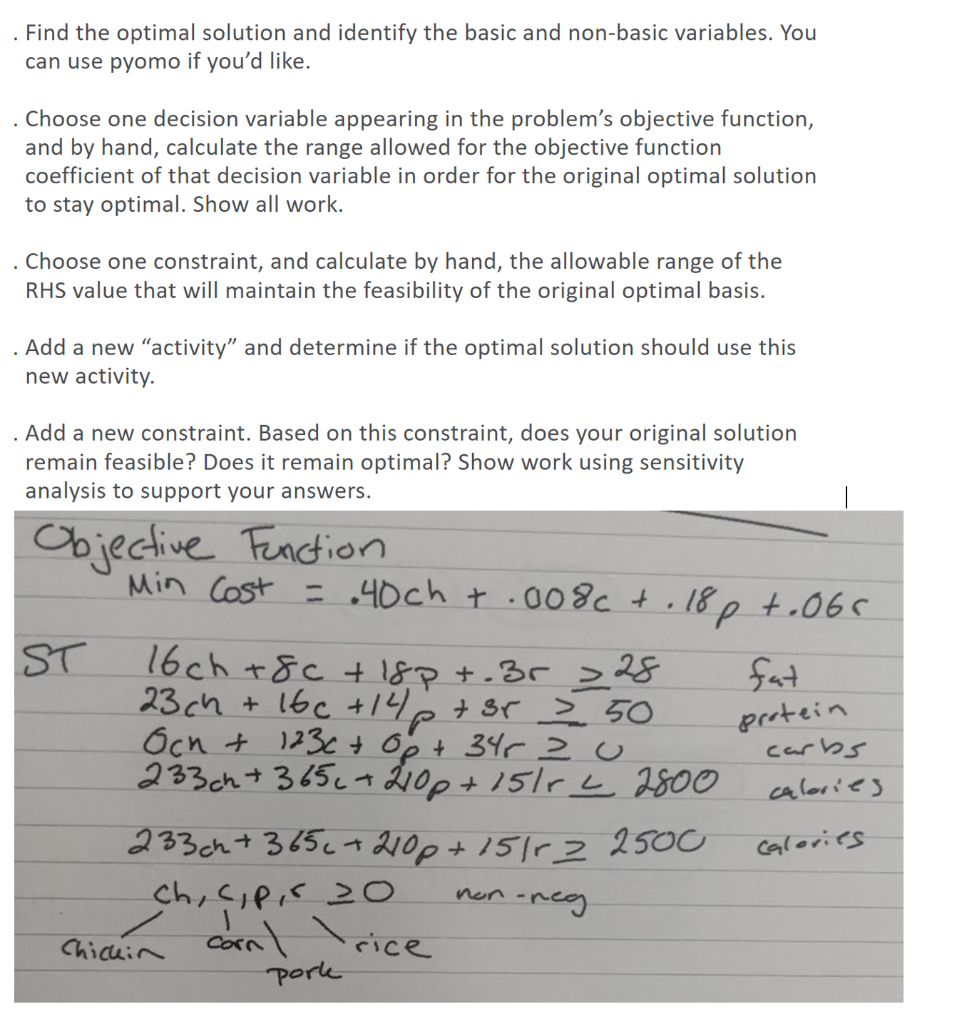 . Find the optimal solution and identify the basic and non-basic variables. You
can use pyomo if you’d like.
. Choose one decision variable appearing in the problem’s objective function,
and by hand, calculate the range allowed for the objective function
coefficient of that decision variable in order for the original optimal solution
to stay optimal. Show all work.
. Choose one constraint, and calculate by hand, the allowable range of the
RHS value that will maintain the feasibility of the original optimal basis.
. Add a new “activity” and determine if the optimal solution should use this
new activity.
. Add a new constraint. Based on this constraint, does your original solution
remain feasible? Does it remain optimal? Show work using sensitivity
analysis to support your answers.
Objective Function
Min Cost = .40ch + .008c + .18p + .06r
ST 16ch + 8c + 18p + .3r ≥ 28 fat
23ch + 16c + 14p + 3r ≥ 50 protein
0ch + 123c + 0p + 34r ≥ 0 carbs
233ch + 365c + 210p + 151r ≤ 2800 calories
233ch + 365c + 210p + 151r ≥ 2500 calories
ch, c, p, r ≥ 0 non-neg
Chickin corn rice
pork